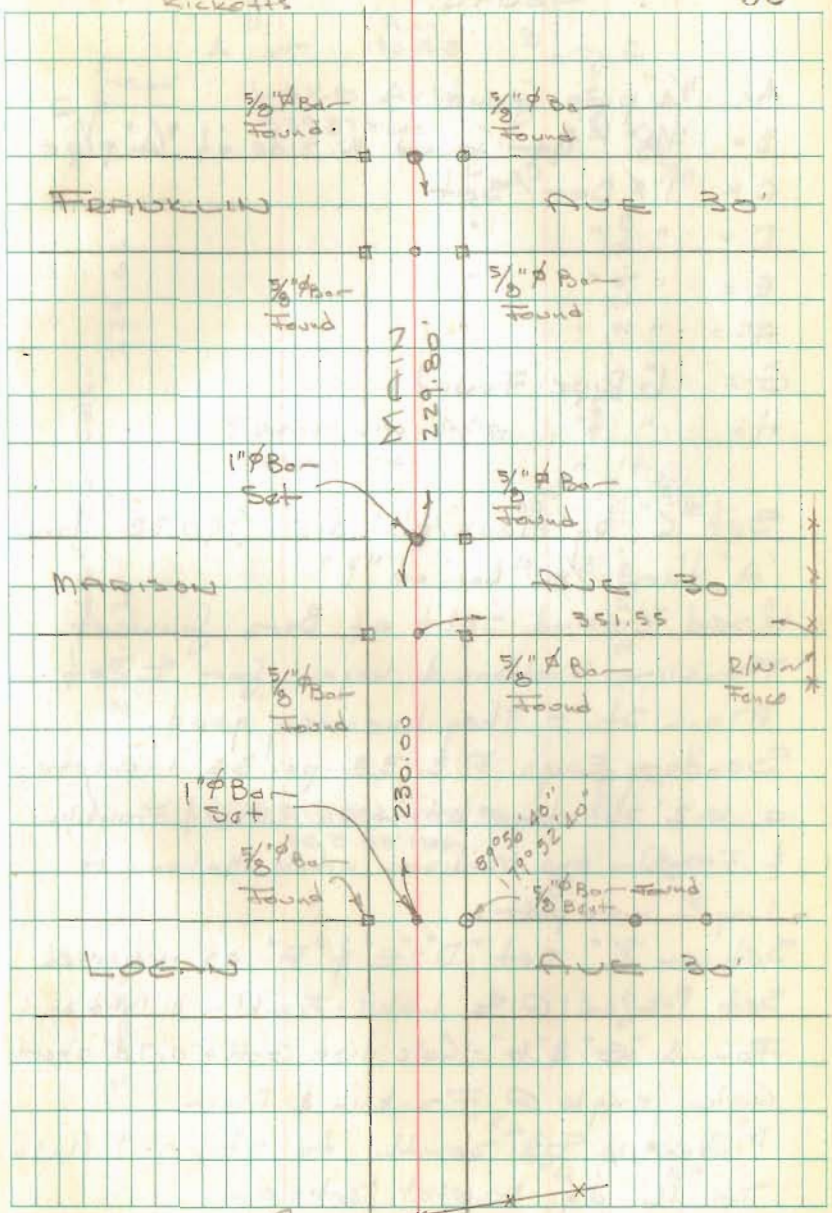 Ricketts
5/8" ø Bar
Found
5/8" ø Bar
Found
FRANKLIN AVE 30'
5/8" ø Bar
Found
5/8" ø Bar
Found
MAIN
229.80'
1" ø Bar
Set
5/8" ø Bar
Found
MADISON AVE 30
351.55
5/8" ø Bar
Found
5/8" ø Bar
Found
R/W
Fence
230.00
1" ø Bar
Set
5/8" ø Bar
Found
89° 56' 40"
179° 52' 40"
5/8" ø Bar Found
Bent
LOGAN AVE 30'